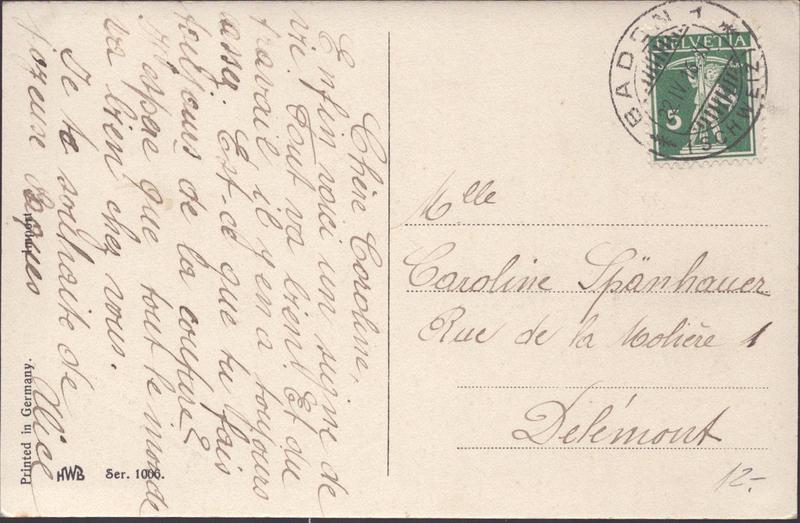 Chère Caroline,
Enfin voici un signe de
vie. Tout va bien! Et du
travail il y en a toujours
assez. Est-ce que tu fais
toujours de la couture?
J'espère que tout le monde
va bien chez vous.
Je te souhaite de
joyeuse Pâques
Alice
HELVETIA
5
BADEN 1
(SCHWEIZ)
Mlle
Caroline Spänhauer
Rue de la Molière 1
Delémont
12.-
Printed in Germany.
HWB Ser. 1006.